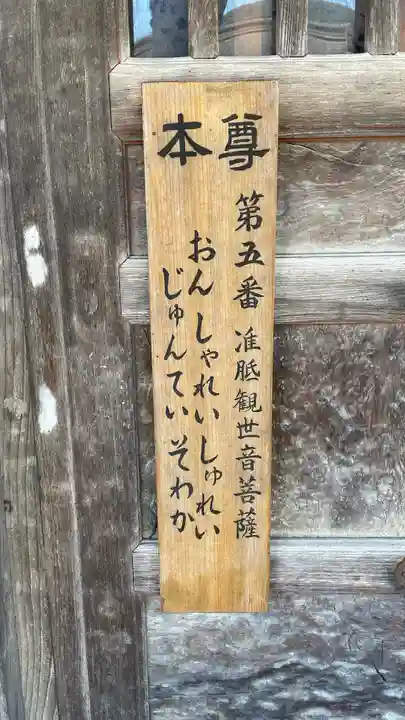 本尊
第五番 准胝観世音菩薩
おん しゃれい しゅれい
じゅんてい そわか